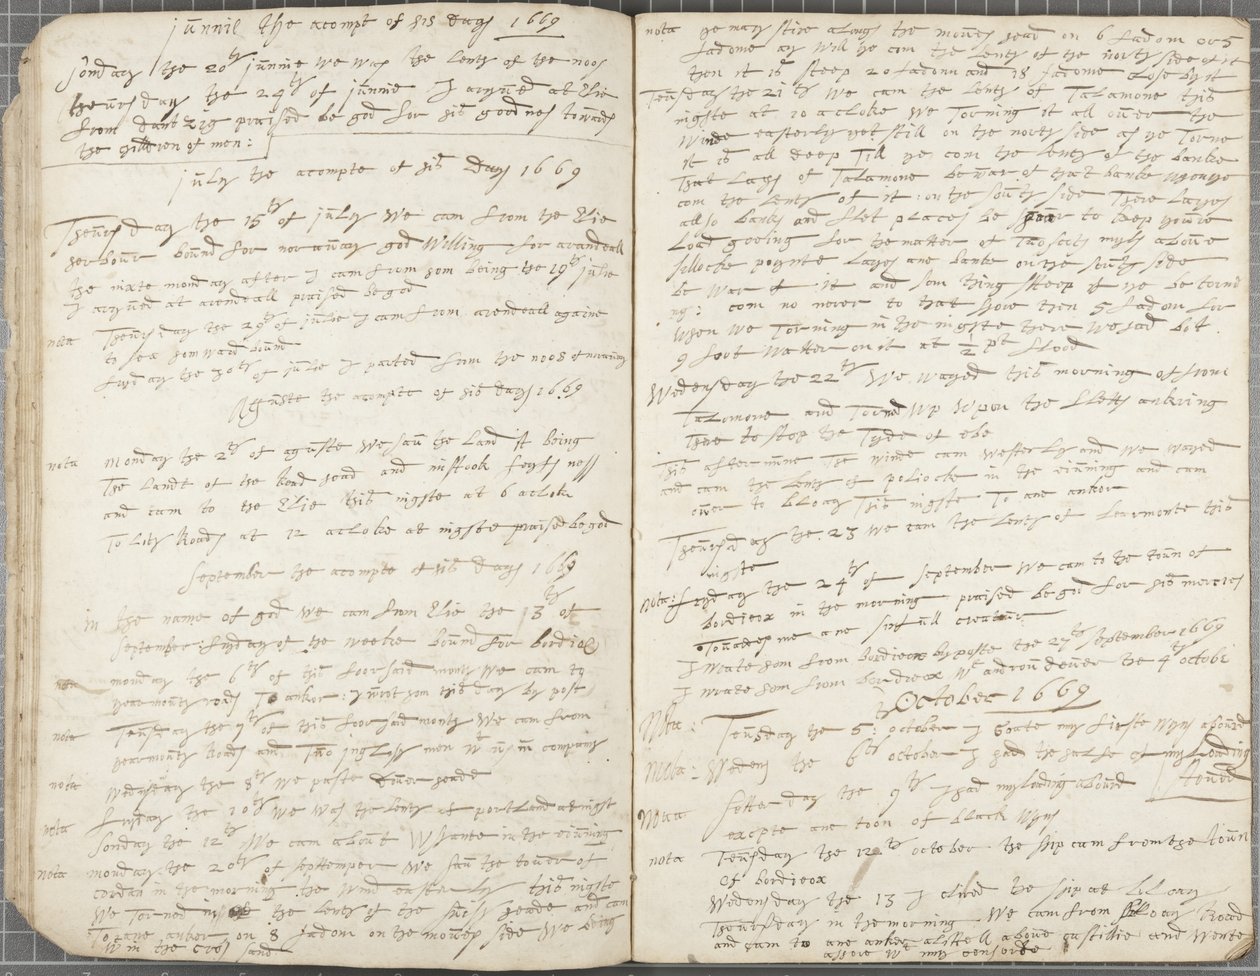 junnie the acompt of his days 1669
Sonday the 20th junnie we was the lenth of the noos
theursday the 24th of junnie I aryved at Elie
from dantzig praised be god for his goodnes towards
the children of men:
july the acompte of his days 1669
Theursday the 15th of july we cam from the Elie
herbour bound for noraway god willing for arandeall
the nixte monday after I cam from hom being the 19th julie
I aryved at arendeall praised be god
nota Theursday the 29th of julie I cam from arendeall againe
to sea homward bound
fryday the 30th of julie I parted from the noos of noraway
Aguste the acompte of his days 1669
nota monday the 2th of aguste we sau the land it being
the landt of the Road head and mistook feyfs noss
and cam to the Elie this nighte at 6 acloke
To Lith Roads at 12 acloke at nighte praised be god
September the acompte of his days 1669
in the name of god we cam from Elie the 13th of
september fryday of the weeke bound for bordiox
monday the 6th of this foorsaid month we cam to
yearmouth roads To anker: I wrot hom this day by post
nota Teusday the 7th of this foorsaid month we cam from
yearmouth Roads and Two inglish men wt us in company
nota Wedensday the 8th we paste dover heade
fryday the 10th we was the lenth of portland at night
nota Sonday the 12th we cam about Wshante in the evinning
nota monday the 20th of septtember we sau the touer of
Cordan in the morning the wind easterly this nighte
we torned in the lenth of the heade and cam
To ane anker on 8 fadom on the side we being
in the sand
nota ye may stire alongs the mouth head on 6 fadom or 5
fadome ay will ye com the lenth of the north side of it
then it is steep 20 fadom and 18 fadome close by it
Teusday the 21th we cam the lenth of Talamone this
nighte at 10 acloke we Torning it all over the
winde easterly yet still on the north side as ye Torne
it is all deep Till ye com the lenth of the banke
That layes of Talamone be war of that banke when ye
com the lenth of it: on the south side There layes
allso banks and flet places be to keep youre
Load goeing for the matter of Two scots myls aboue
poynte layes ane banke on the south side
be war of it and som thing steep if ye be torni
ng: com no nerer to that shore then 5 fadom for
when we Torning in the nighte there we had bot
9 foot watter on it at 1/2 pt flood
Wedensday the 22th we wayed this morning of from
Talomone and Torned wp wpon the fletts ankring
There to stop the Tyde of ebe
This after nune The winde cam westerly and we wayed
and cam the lenth of poliocke in the evinning and cam
over to bloay This nighte To ane anker
Theursday the 23 we cam the lenth of Learmonte this
nighte
nota: fryday the 24th of september we cam to the toun of
bordieox in the morning praised be god for his mercies
Towards me ane sinfull creatuir
I wrate hom from bordieox by poste the 27th september 1669
I wrate hom from bordieox wt the 4th octobr
October 1669
Nota: Teusday the 5: october I gate my firste wyns abourd
Nota: Wedensday the 6th october I had the halfe of my loading
abourd
Nota Satterday the 9th I had my loading abourd
excepte ane toon of black wyns
nota Teusday the 12th october the ship cam from the toun
of bordieox
Wedensday the 13 I clired the ship at bloay
Theursday in the morning we cam from bloay Road
and cam to ane anker alittell aboue castilie and wente
ashore wt my